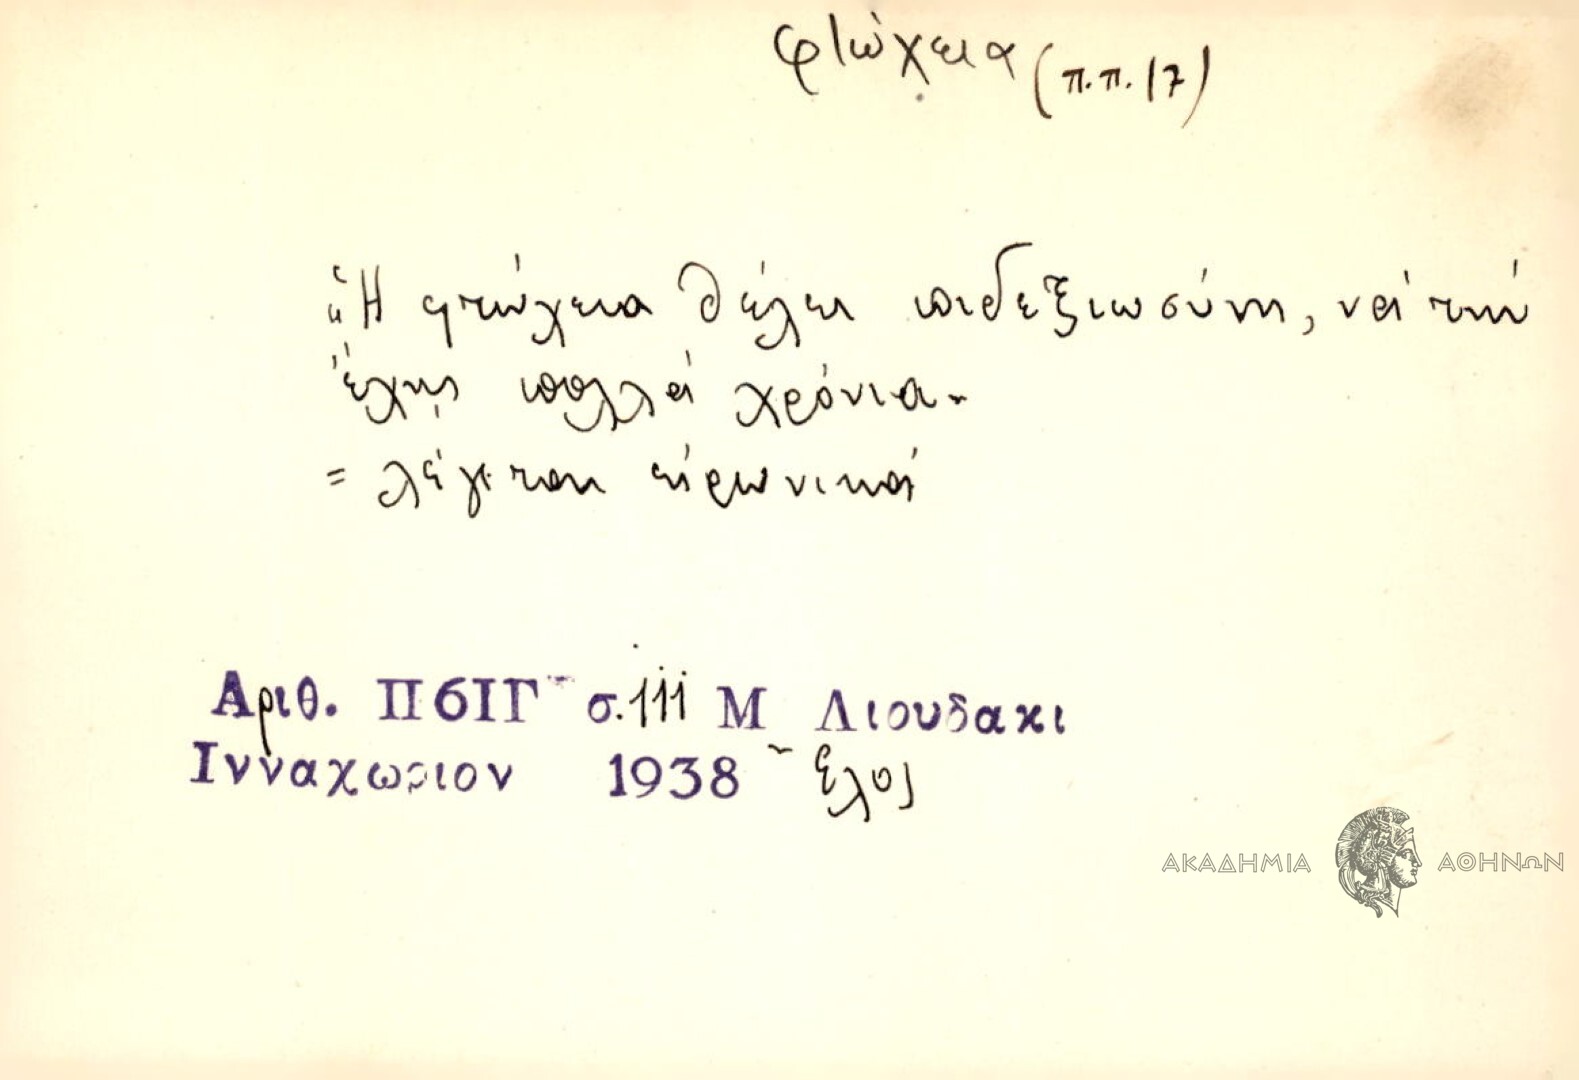 φτώχεια (π.π. 17)
"Ἡ φτώχεια θέλει πιδεξιωσύνη, νά τήν
ἔχῃς πολλά χρόνια.
= λέγεται εἰρωνικά
Αριθ. Π6ΙΓ σ. 111 Μ Λιουδακι
Ινναχωριον 1938 ~ Ἕλος
ΑΚΑΔΗΜΙΑ ΑΘΗΝΩΝ